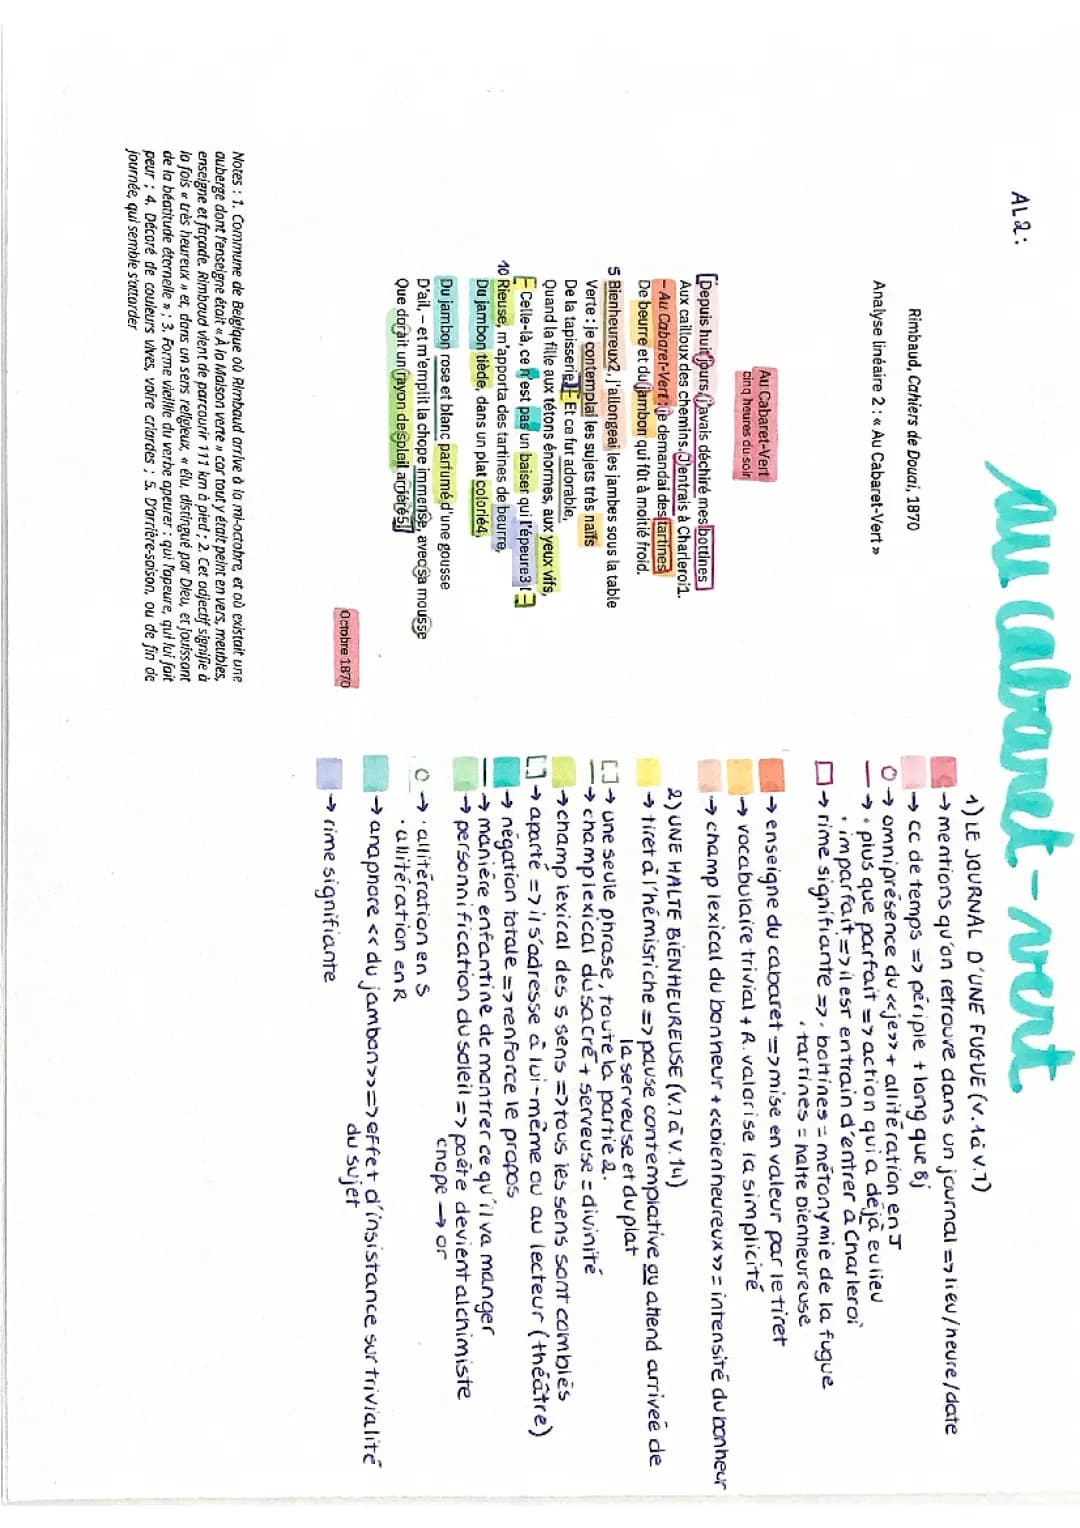 au cabaret-vert
AL 2:
Rimbaud, Cahiers de Douai, 1870
Analyse linéaire 2 : « Au Cabaret-Vert »
Au Cabaret-Vert
cinq heures du soir
Depuis huit jours, j'avais déchiré mes bottines
Aux cailloux des chemins. J'entrais à Charleroi1.
- Au Cabaret-Vert : je demandai des tartines
De beurre et du jambon qui fût à moitié froid.
5 Bienheureux2, j'allongeai les jambes sous la table
Verte : je contemplai les sujets très naïfs
De la tapisserie. - Et ce fut adorable,
Quand la fille aux tétons énormes, aux yeux vifs,
- Celle-là, ce n'est pas un baiser qui l'épeure3 ! -
10 Rieuse, m'apporta des tartines de beurre,
Du jambon tiède, dans un plat colorié4,
Du jambon rose et blanc parfumé d'une gousse
D'ail, - et m'emplit la chope immense, avec sa mousse
Que dorait un rayon de soleil arriéré5.
Octobre 1870
Notes : 1. Commune de Belgique où Rimbaud arrive à la mi-octobre, et où existait une
auberge dont l'enseigne était « À la Maison verte » car tout y était peint en vers, meubles,
enseigne et façade. Rimbaud vient de parcourir 111 km à pied ; 2. Cet adjectif signifie à
la fois « très heureux » et, dans un sens religieux, « élu, distingué par Dieu, et jouissant
de la béatitude éternelle » ; 3. Forme vieillie du verbe apeurer : qui l'apeure, qui lui fait
peur ; 4. Décoré de couleurs vives, voire criardes ; 5. D'arrière-saison, ou de fin de
journée, qui semble s'attarder
1) LE JOURNAL D'UNE FUGUE (v.1 à v.7)
→ mentions qu'on retrouve dans un journal => lieu/heure/date
→ cc de temps => périple + long que 8j
→ omniprésence du <<je>> + allitération en J
→ • plus que parfait => action qui a déjà eu lieu
• imparfait => il est entrain d'entrer à Charleroi
→ rime signifiante => • bottines = métonymie de la fugue
• tartines = halte bienheureuse
→ enseigne du cabaret => mise en valeur par le tiret
→ vocabulaire trivial + R. valorise la simplicité
→ champ lexical du bonheur + <<bienheureux>> = intensité du bonheur
2) UNE HALTE BIENHEUREUSE (v.7 à v.14)
→ tiret à l'hémistiche => pause contemplative ou attend arriveé de
la serveuse et du plat
[] → une seule phrase, toute la partie 2.
→ champ lexical du sacré + serveuse = divinité
→ champ lexical des 5 sens => tous les sens sont comblés
[] → aparté => il s'adresse à lui-même ou au lecteur (théâtre)
→ négation totale => renforce le propos
→ manière enfantine de montrer ce qu'il va manger
→ personnification du soleil => poète devient alchimiste
chope → or
→ • allitération en S
• allitération en R
→ anaphore <<du jambon>> => effet d'insistance sur trivialité
du sujet
→ rime signifiante